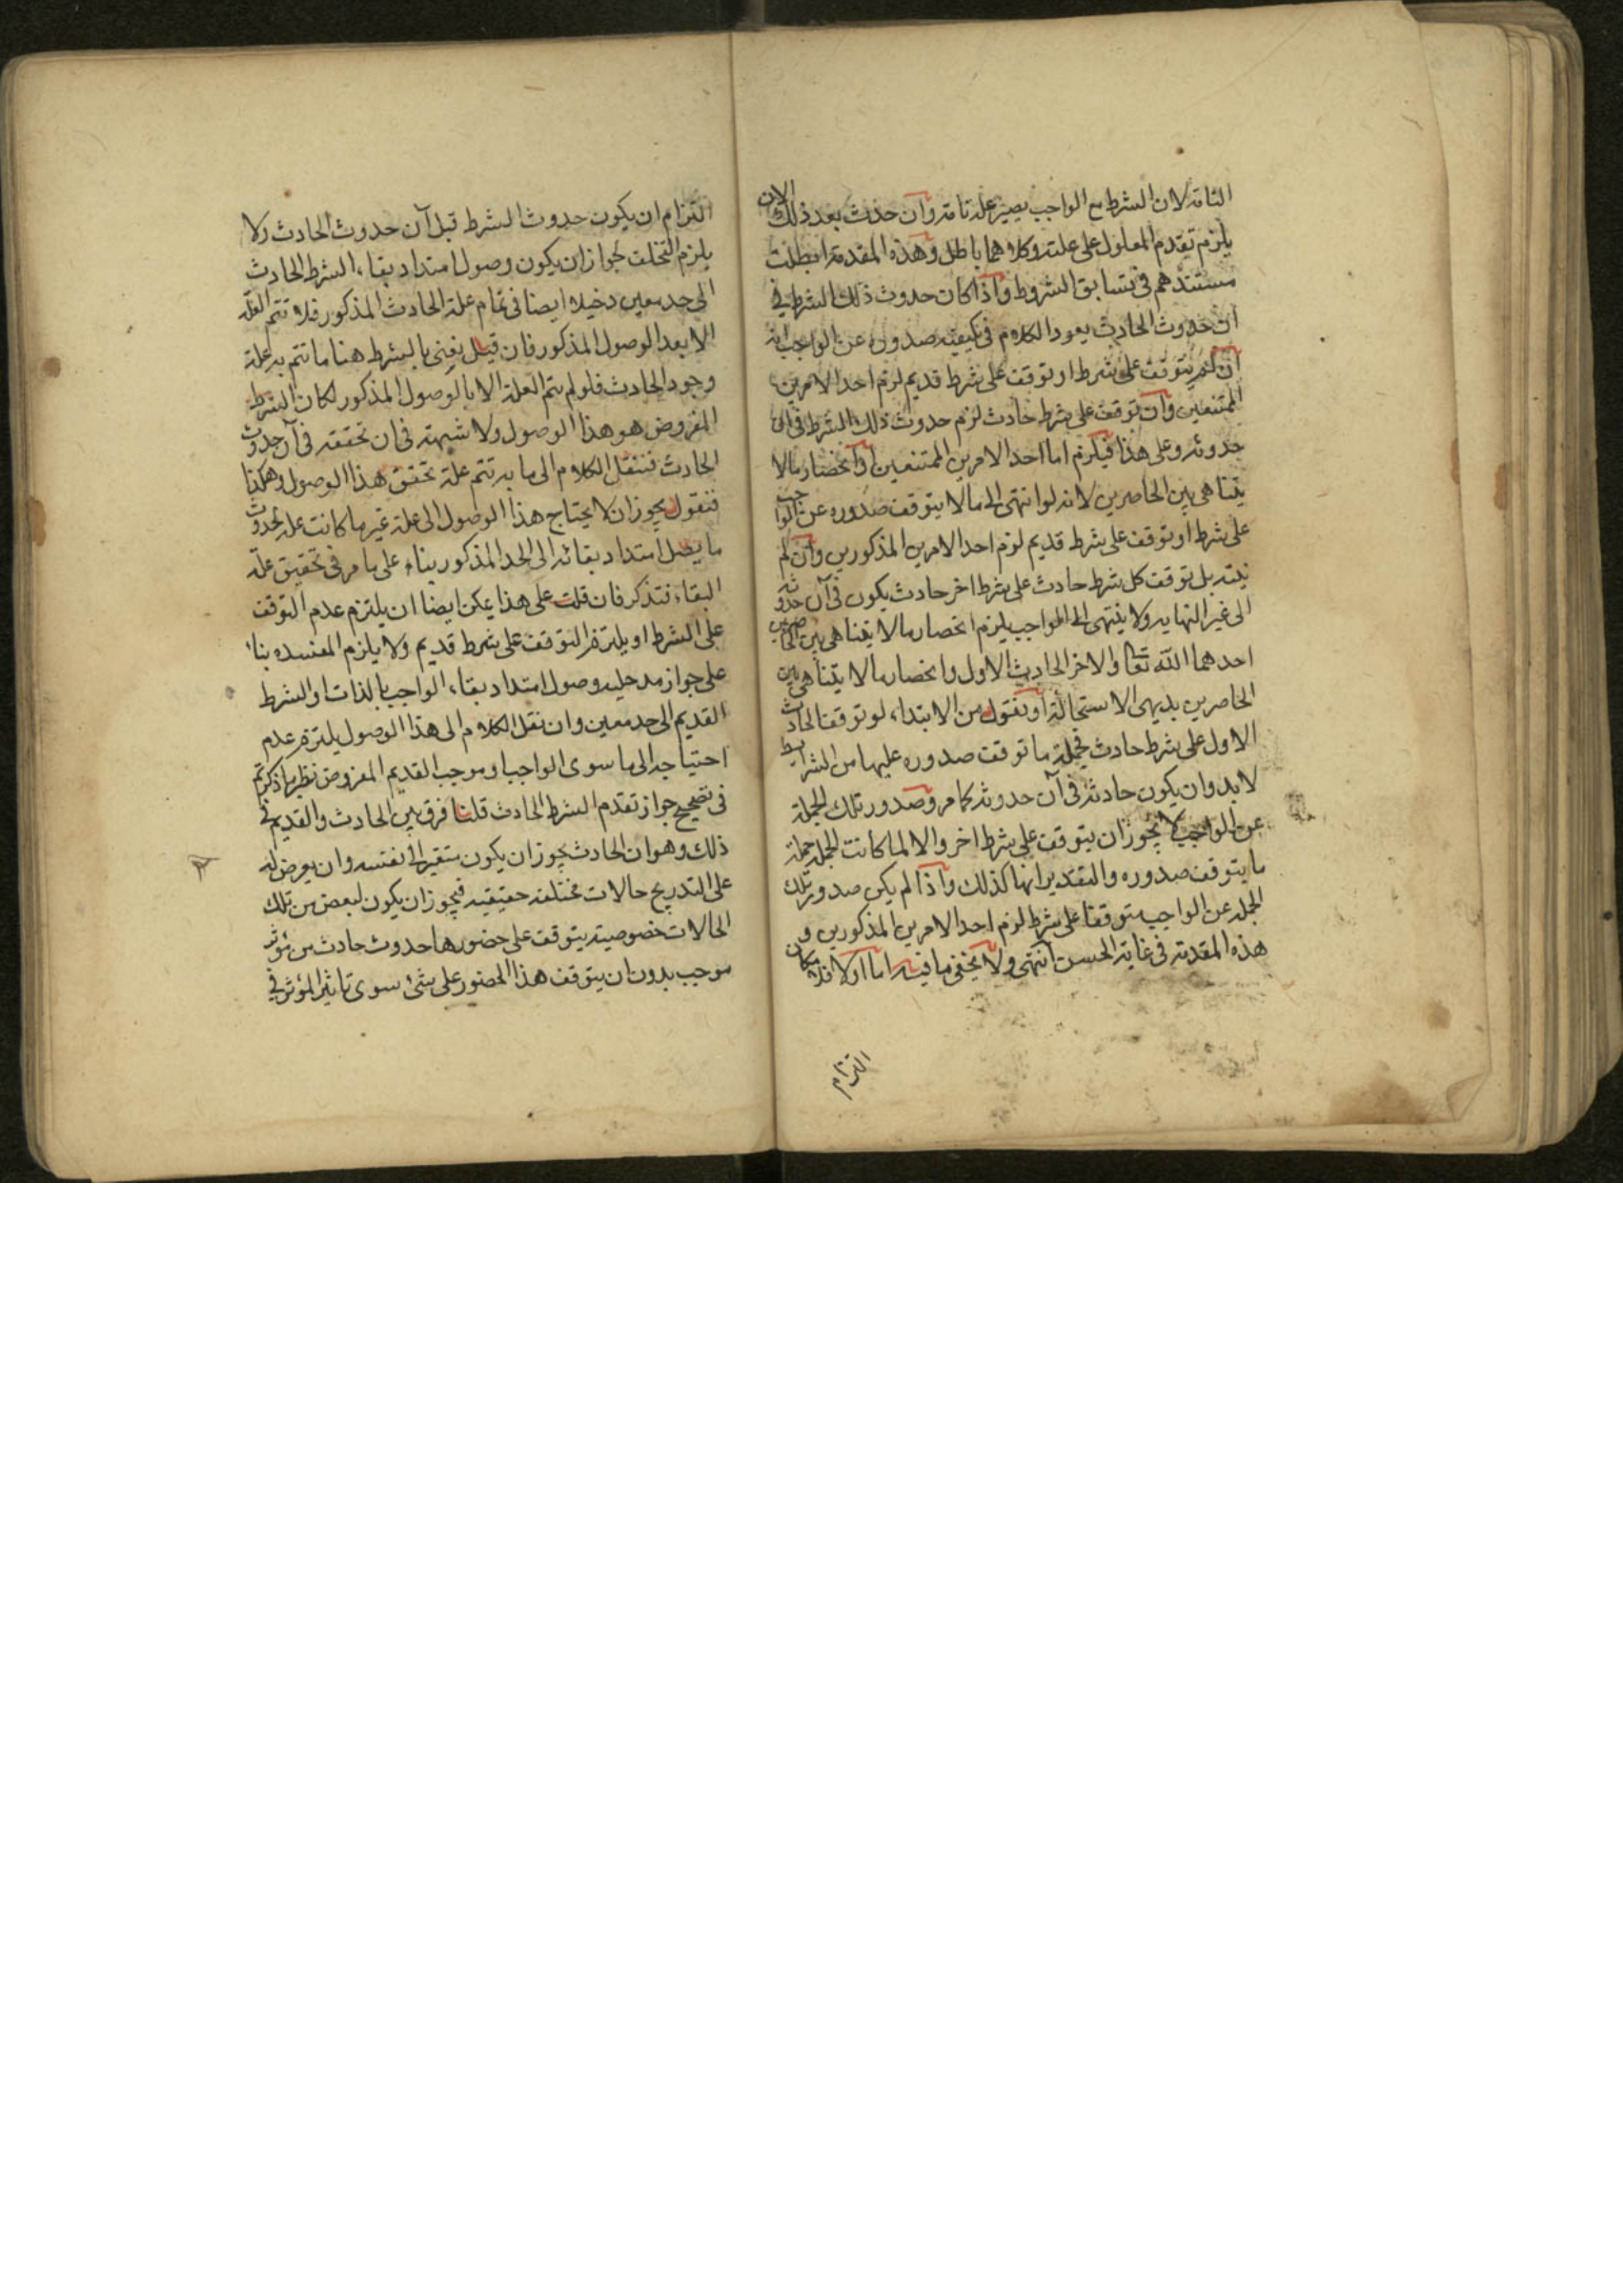 التامة لان الشرط مع الواجب يصير علة تامة وان حدث بعد ذلك الان
يلزم تقدم المعلول على علته وكلاهما باطل وهذه المقدمة ابطلت
مستندهم فى تسابق الشروط واذا كان حدوث ذلك الشرط فى
آن حدوث الحادث يعود الكلام فى كيفية صدوره عن الواجب انه
ان لم يتوقف على شرط او توقف على شرط قديم لزم احد الامرين
الممتنعين وان توقف على شرط حادث لزم حدوث ذلك الشرط فى آن
حدوثه وعلى هذا فيلزم اما احد الامرين الممتنعين او انحصار مالا
يتناهى بين الحاصرين لانه لو انتهى الى مالا يتوقف صدوره عن الواجب
على شرط او توقف على شرط قديم لزم احد الامرين المذكورين وان لم
ينته بل توقف كل شرط حادث على شرط اخر حادث يكون فى آن حدوثه
الى غير النهاية ولا ينتهى الى الواجب يلزم انحصار مالا يتناهى بين الحاصرين
احدهما الله تعالى والاخر الحادث الاول وانحصار مالا يتناهى بين
الحاصرين بديهى الاستحالة او نقول من الابتداء لو توقف الحادث
الاول على شرط حادث فجملة ما توقف صدوره عليها من الشرايط
لابد وان يكون حادثة فى آن حدوثه كما مر وصدور تلك الجملة
عن الواجب لا يجوز ان يتوقف على شرط اخر والا لما كانت الجملة جملة
ما يتوقف صدوره والتقدير انها كذلك واذا لم يكن صدور تلك
الجملة عن الواجب متوقفا على شرط لزم احد الامرين المذكورين و
هذه المقدمة فى غاية الحسن انتهى ولا يخفى ما فيه اما اولا فلامكان
التزام
التزام ان يكون حدوث الشرط قبل آن حدوث الحادث ولا
يلزم التخلف لجواز ان يكون وصول امتداد بقاء الشرط الحادث
الى حد معين دخيلا ايضا فى تمام علة الحادث المذكور فلا تتم العلة
الا بعد الوصول المذكور فان قيل نعنى بالشرط هنا ما تتم به علة
وجود الحادث فلو لم يتم العلة الا بالوصول المذكور لكان الشرط
المفروض هو هذا الوصول ولا شبهة فى ان تحققه فى آن حدوث
الحادث فننقل الكلام الى ما به تتم علة تحقق هذا الوصول وهكذا
فنقول يجوز ان لا يحتاج هذا الوصول الى علة غير ما كانت علة لحدوث
ما يصل امتداد بقائه الى الحد المذكور بناء على ما مر فى تحقيق علة
البقاء فتذكر فان قلت على هذا يمكن ايضا ان يلتزم عدم التوقف
على الشرط او يلتزم التوقف على شرط قديم ولا يلزم المفسده بناء
على جواز مدخلية وصول امتداد بقاء الواجب بالذات او الشرط
القديم الى حد معين وان نقل الكلام الى هذا الوصول يلتزم عدم
احتياجه الى ما سوى الواجب او موجب القديم المفروض نظير ما ذكرتم
فى تصحيح جواز تقدم الشرط الحادث قلنا فرق بين الحادث والقديم فى
ذلك وهو ان الحادث يجوز ان يكون متغيرا فى نفسه وان يعرض له
على التدريج حالات مختلفة حقيقيه فيجوز ان يكون لبعض من تلك
الحالات خصوصية يتوقف على حضورها حدوث حادث من مؤثر
موجب بدون ان يتوقف هذا الحضور على شئ سوى تاثير المؤثر فى